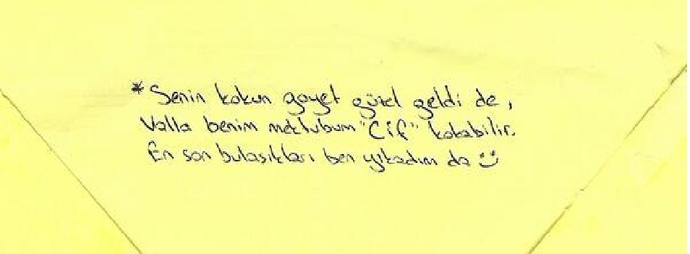 * Senin kokun gayet güzel geldi de,
Valla benim mektubum "Cif" kokabilir.
En son bulaşıkları ben yıkadım da :)